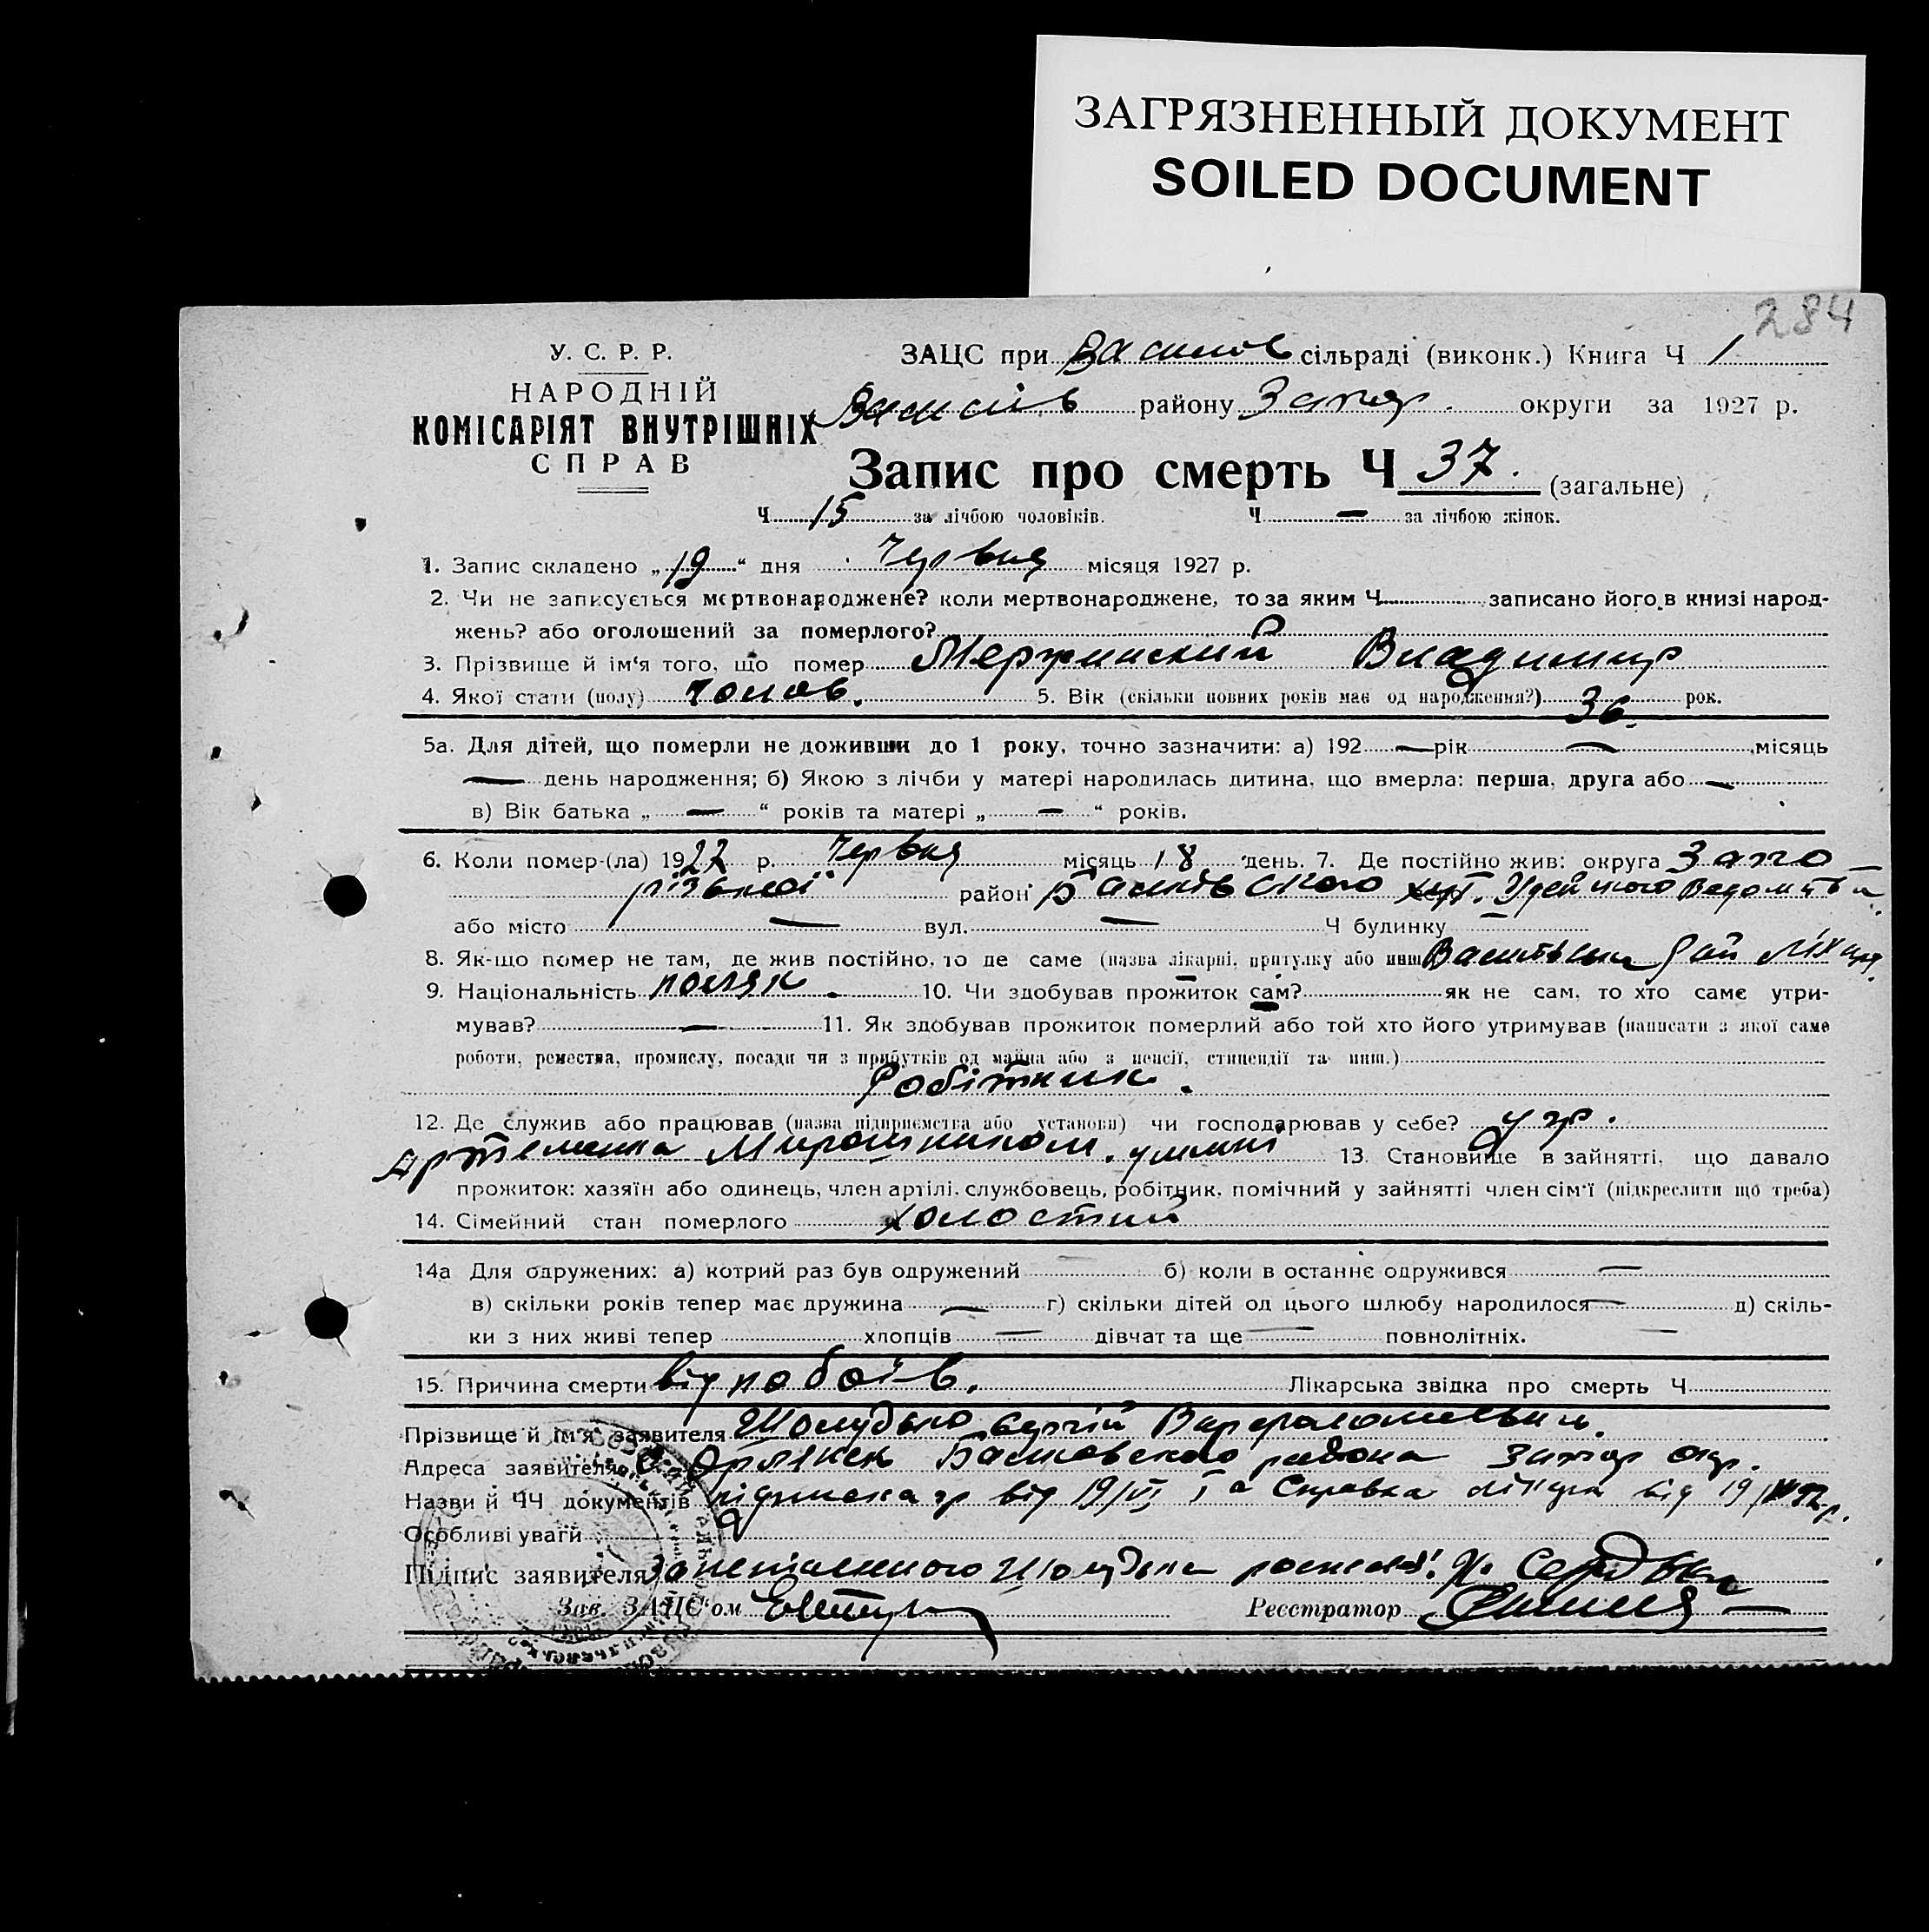 ЗАГРЯЗНЕННЫЙ ДОКУМЕНТ
SOILED DOCUMENT
284
У. С. Р. Р.
НАРОДНІЙ
КОМІСАРІЯТ ВНУТРІШНІХ
СПРАВ
ЗАЦС при сільраді (виконк.) Книга Ч 1
району Запор. округи за 1927 р.
Запис про смерть Ч 37. (загальне)
Ч 15 за лічбою чоловіків. Ч — за лічбою жінок.
1. Запис складено „19“ дня Червня місяця 1927 р.
2. Чи не записується мертвонароджене? коли мертвонароджене, то за яким Ч записано його в книзі народ-
жень? або оголошений за померлого?
3. Прізвище й ім‘я того, що помер Мержинский Владимир
4. Якої стати (полу) чолов. 5. Вік (скільки повних років має од народження?) 36 рок.
5а. Для дітей, що померли не доживши до 1 року, точно зазначити: а) 192 — рік — місяць
— день народження; б) Якою з лічби у матері народилась дитина, що вмерла: перша, друга або —
в) Вік батька „ — “ років та матері „ — “ років.
6. Коли помер-(ла) 1927 р. Червня місяць 18 день. 7. Де постійно жив: округа Запо-
різької район
або місто — вул. — Ч будинку —
8. Як-що помер не там, де жив постійно, то де саме (назва лікарні, притулку або инш
9. Національність поляк. 10. Чи здобував прожиток сам? як не сам, то хто саме утри-
мував? — 11. Як здобував прожиток померлий або той хто його утримував (написати з якої саме
роботи, ремества, промислу, посади чи з прибутків од майна або з пенсії, стипендії та инш.)
Робітник.
12. Де служив або працював (назва підприємства або установи) чи господарював у себе? у гр.
Артеменка 13. Становище в зайнятті, що давало
прожиток: хазяїн або одинець, член артілі, службовець, робітник, помічний у зайнятті член сім‘ї (підкреслити що треба)
14. Сімейний стан померлого холостий
14а Для одружених: а) котрий раз був одружений — б) коли в останнє одружився —
в) скільки років тепер має дружина — г) скільки дітей од цього шлюбу народилося — д) скіль-
ки з них живі тепер хлопців — дівчат та ще — повнолітніх. —
15. Причина смерти від побоїв. Лікарська звідка про смерть Ч
Прізвище й ім‘я заявителя Шолудько Сергій
Адреса заявителя района Запор окр.
Назви й ЧЧ документів підписка гр від 19/VI Справка від 19/
Особливі уваги
Підпис заявителя
Зав. ЗАЦС‘ом Реєстратор